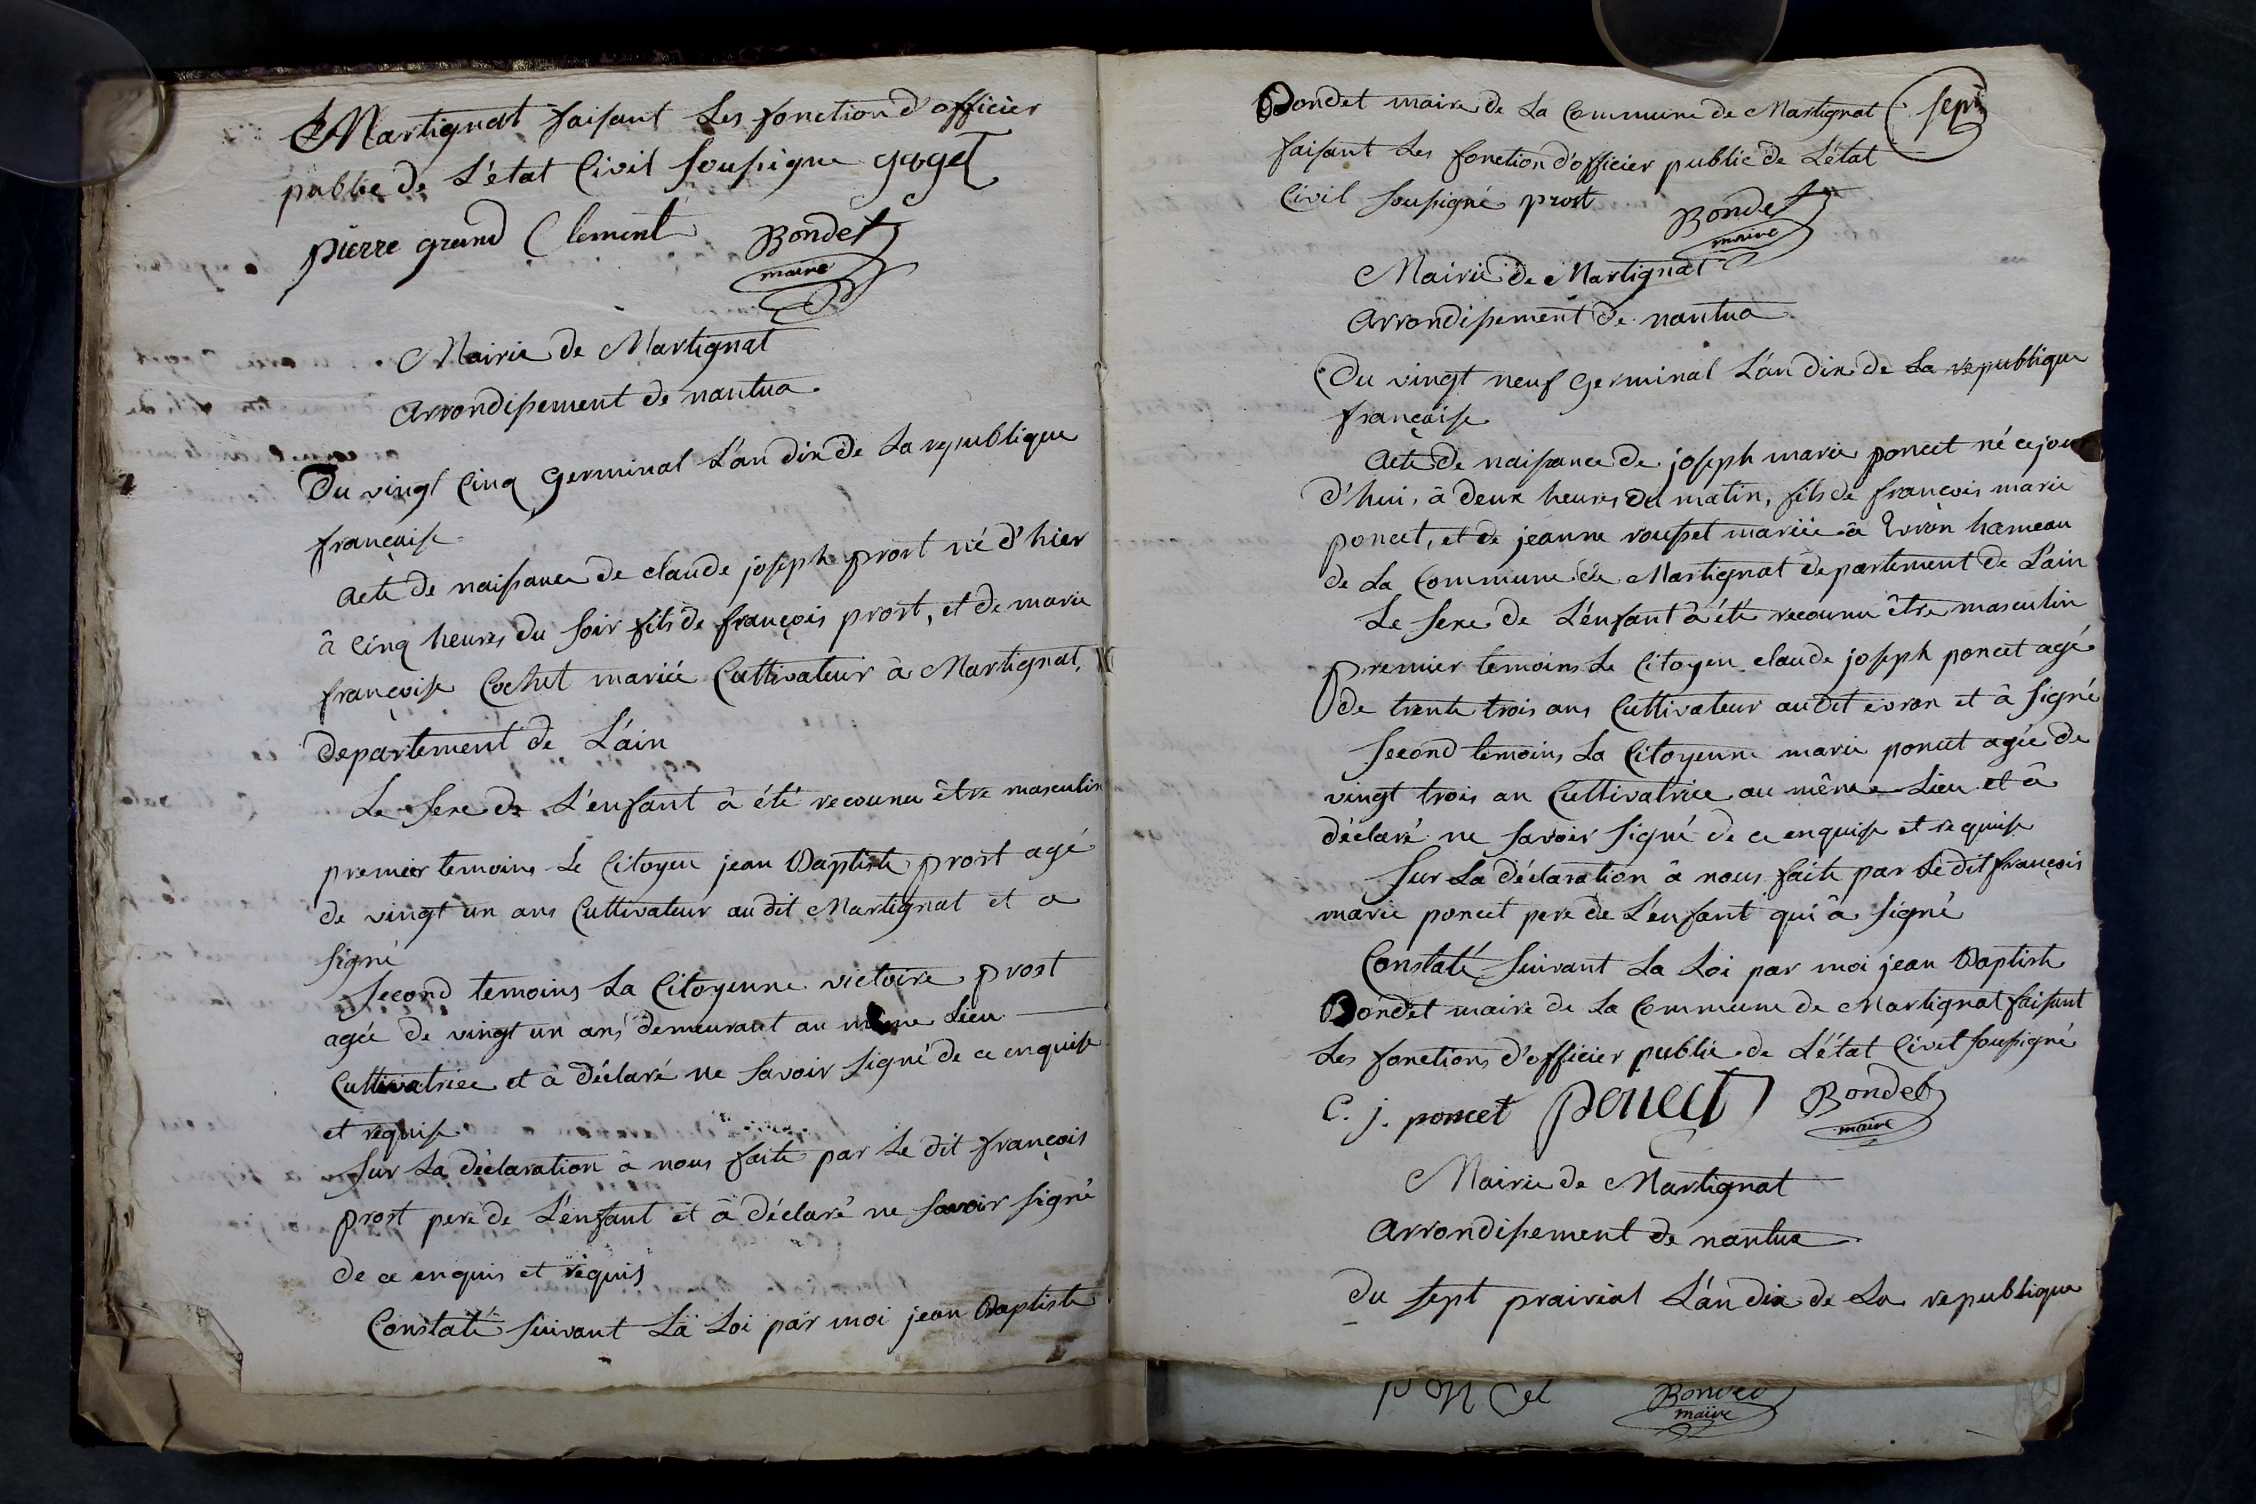 Martignat faisant Les fonction d'officier
public de L'état Civil soussigne goget
pierre grand Clement Bondet
maire
Mairie de Martignat
arrondissement de nantua
Du vingt Cinq Germinal L'an dix de La republique
française
acte de naissance de claude joseph prost né d'hier
à Cinq heures du soir fils de françois prost, et de marie
françoise Cochet mariée Cultivateur à Martignat,
departement de L'ain
Le sexe de L'enfant à été reconnu être masculin
premier temoins Le Citoyen jean Baptiste prost agé
de vingt un ans Cultivateur au dit Martignat et a
signé
second temoins La Citoyenne victoire prost
agée de vingt un ans demeurant au même Lieu
Cultivatrice et à déclaré ne savoir signé de ce enquise
et requise
sur La déclaration à nous faite par Le dit françois
prost pere de L'enfant et à déclaré ne savoir signé
de ce enquis et requis
Constaté suivant La Loi par moi jean Baptiste
Bondet maire de La Commune de Martignat sept
faisant Les fonction d'officier public de L'état
Civil soussigné prost Bondet
maire
Mairie de Martignat
arrondissement de nantua
Du vingt neuf Germinal L'an dix de La republique
française
acte de naissance de joseph marie poncet né ce jour
d'hui, à deux heures du matin, fils de françois marie
poncet, et de jeanne rousset mariée à Evron hameau
de La Commune de Martignat departement de L'ain
Le sexe de L'enfant à été reconnu être masculin
premier temoins Le Citoyen claude joseph poncet agé
de trente trois ans Cultivateur audit evron et à signé
second temoins La Citoyenne marie poncet agée de
vingt trois an Cultivatrice au même Lieu et à
déclaré ne savoir signé de ce enquise et requise
sur La déclaration à nous faite par Le dit françois
marie poncet pere de L'enfant qui à signé
Constaté suivant La Loi par moi jean Baptiste
Bondet maire de La Commune de Martignat faisant
Les fonctions d'officier public de L'état Civil soussigné
C. j. poncet poncet Bondet
maire
Mairie de Martignat
arrondissement de nantua
du sept prairial L'an dix de La republique
poncet Bondet
maire